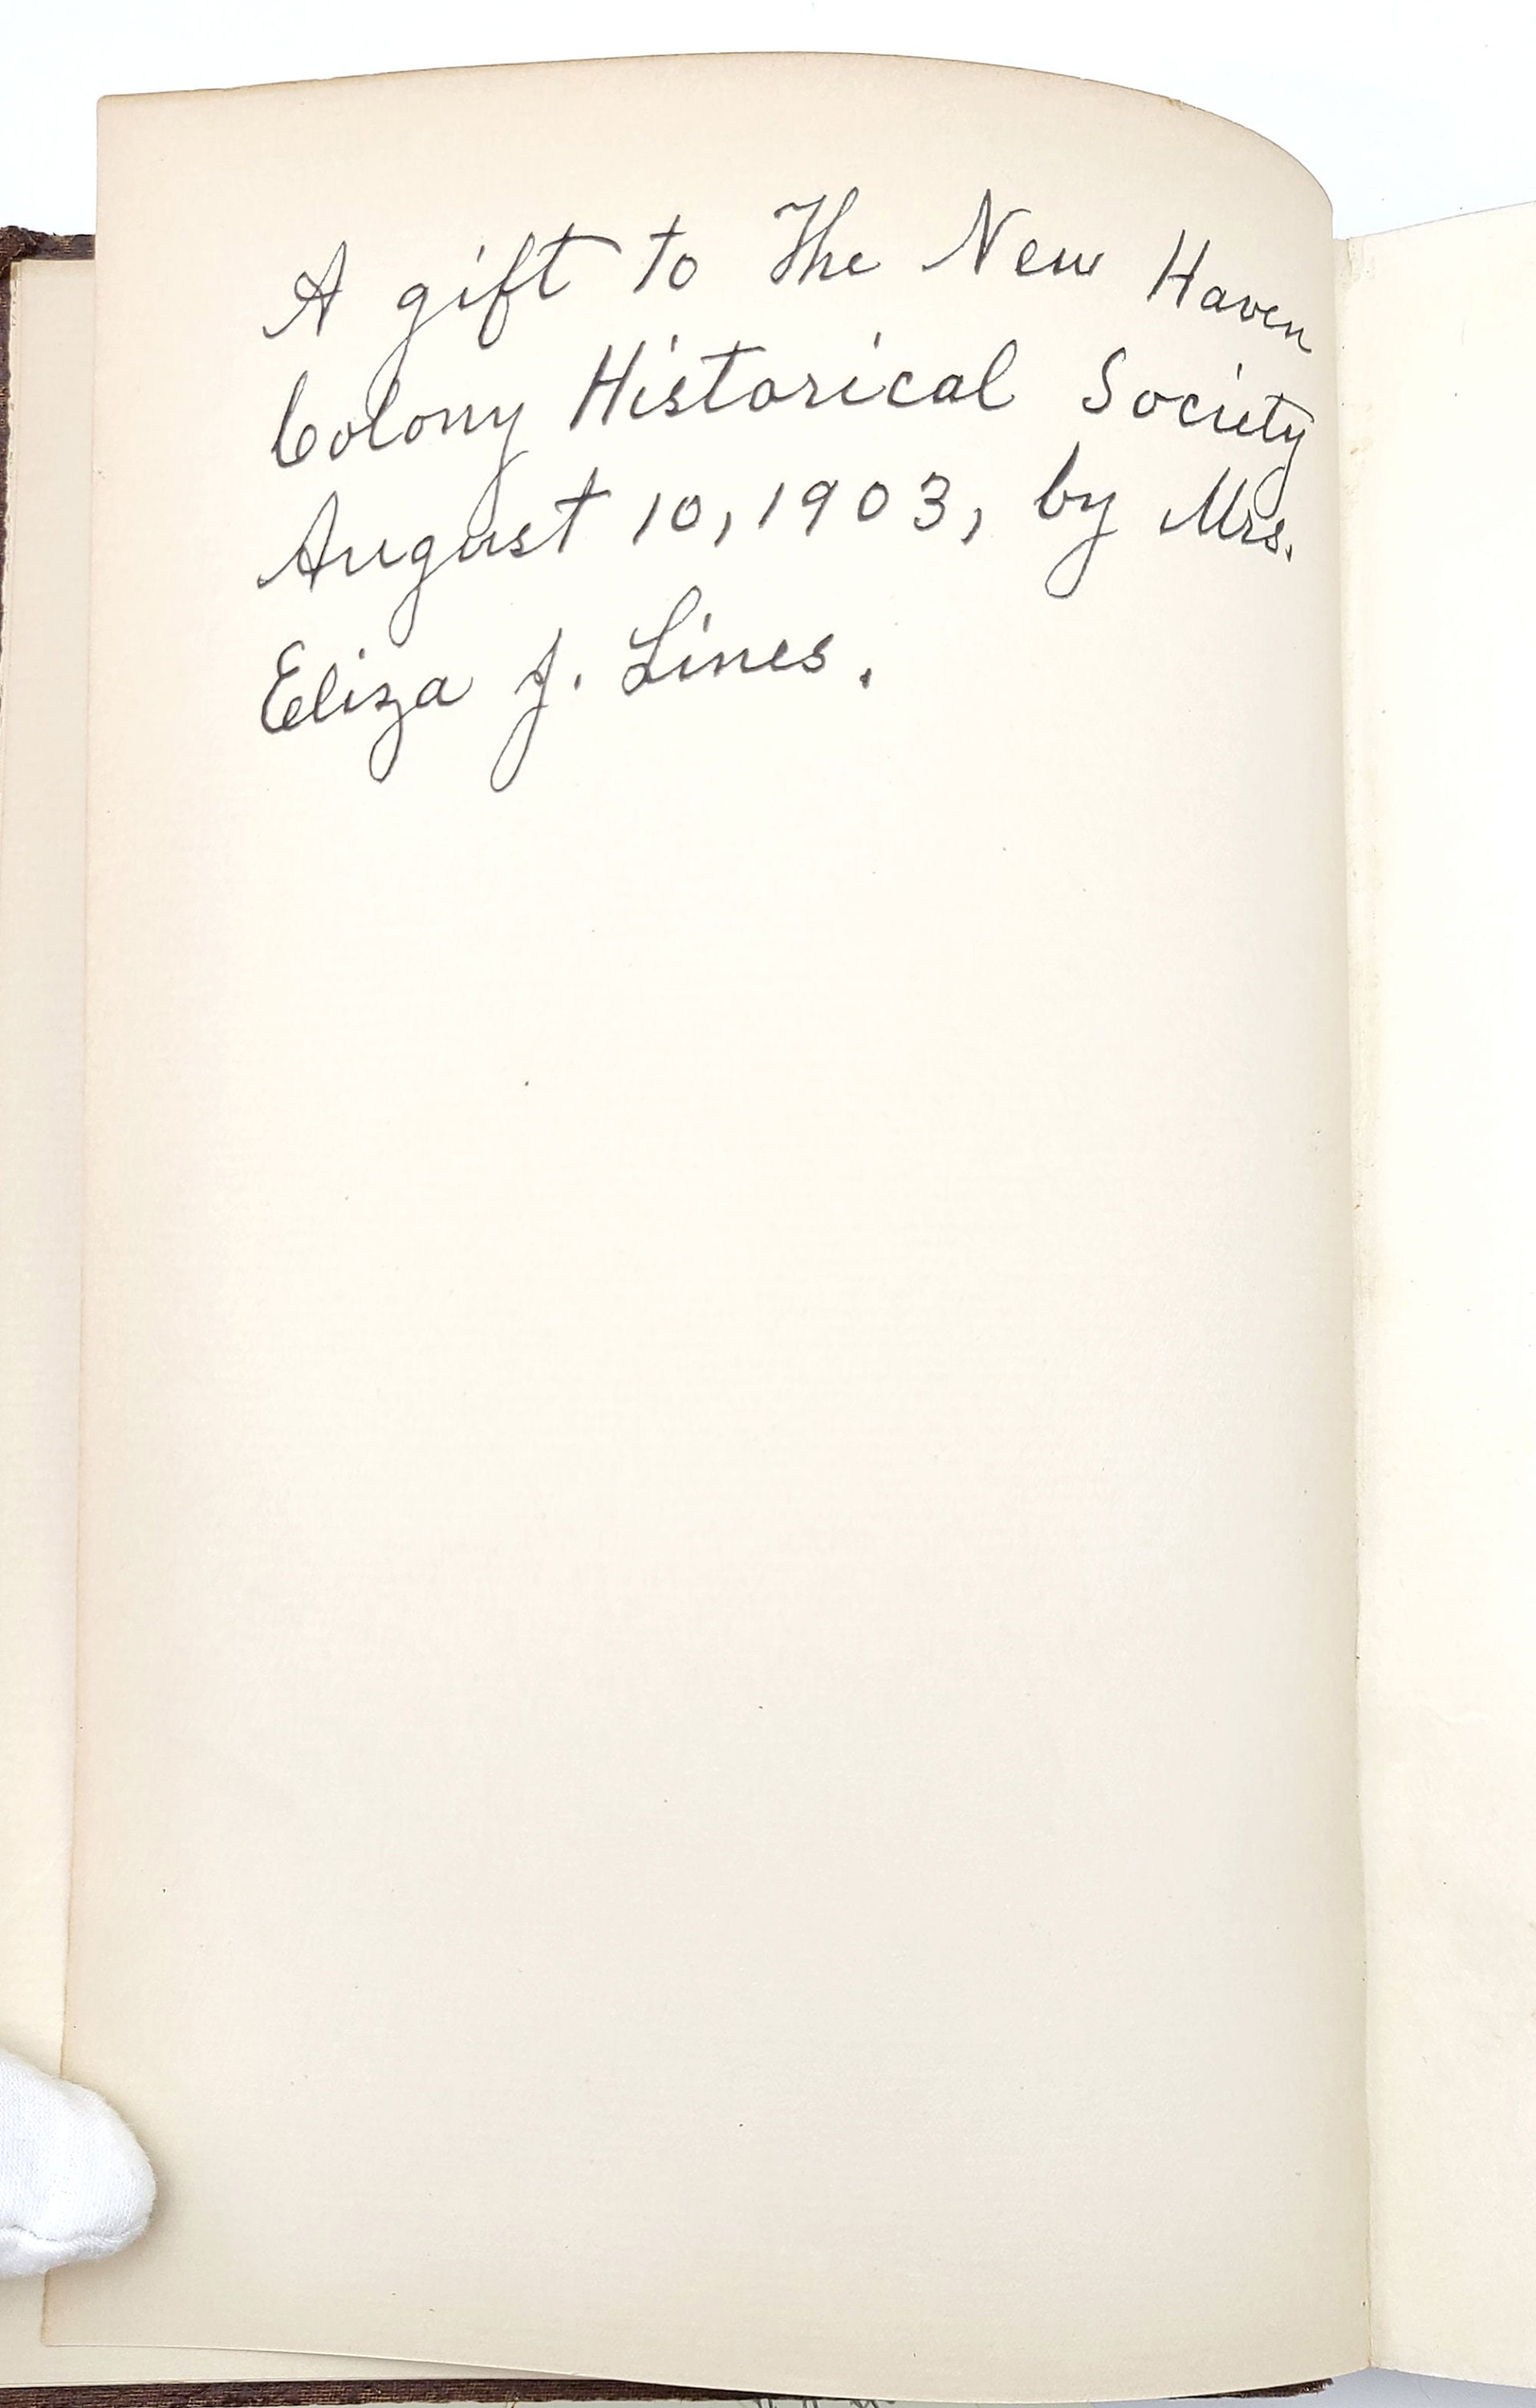 A gift to The New Haven
Colony Historical Society
August 10, 1903, by Mrs.
Eliza J. Lines.